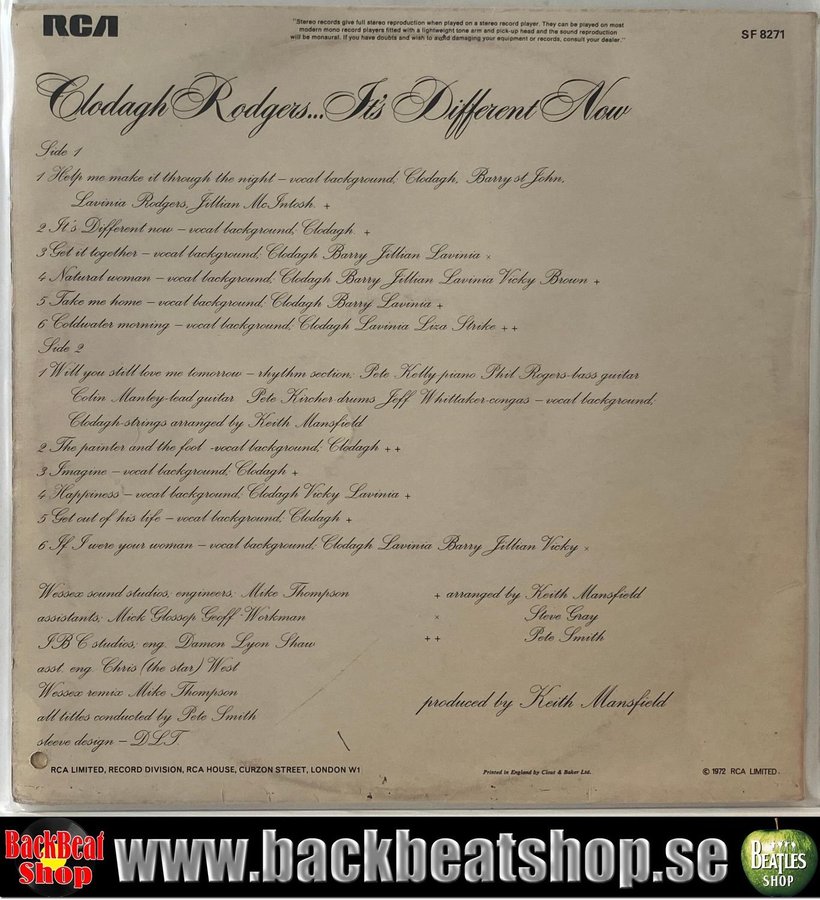 RCA
"Stereo records give full stereo reproduction when played on a stereo record player. They can be played on most
modern mono record players fitted with a lightweight tone arm and pick-up head and the sound reproduction
will be monaural. If you have doubts and wish to avoid damaging your equipment or records, consult your dealer."
SF 8271
Clodagh Rodgers... It's Different Now
Side 1
1 Help me make it through the night – vocal background; Clodagh, Barry st John,
Lavinia Rodgers, Jillian McIntosh. +
2 It's Different now – vocal background; Clodagh. +
3 Get it together – vocal background; Clodagh Barry Jillian Lavinia ×
4 Natural woman – vocal background; Clodagh Barry Jillian Lavinia Vicky Brown +
5 Take me home – vocal background; Clodagh Barry Lavinia +
6 Coldwater morning – vocal background; Clodagh Lavinia Liza Strike ++
Side 2
1 Will you still love me tomorrow – rhythm section; Pete Kelly piano Phil Rogers-bass guitar
Colin Manley-lead guitar Pete Kircher-drums Jeff Whittaker-congas – vocal background;
Clodagh-strings arranged by Keith Mansfield
2 The painter and the fool -vocal background; Clodagh ++
3 Imagine – vocal background; Clodagh +
4 Happiness – vocal background; Clodagh Vicky Lavinia +
5 Get out of his life – vocal background; Clodagh +
6 If I were your woman – vocal background; Clodagh Lavinia Barry Jillian Vicky ×
Wessex sound studios; engineers; Mike Thompson
assistants; Mick Glossop Geoff Workman
I B C studios; eng. Damon Lyon Shaw
asst. eng. Chris (the star) West
Wessex remix Mike Thompson
all titles conducted by Pete Smith
sleeve design – D.L.T.
+ arranged by Keith Mansfield
× Steve Gray
++ Pete Smith
produced by Keith Mansfield
RCA LIMITED, RECORD DIVISION, RCA HOUSE, CURZON STREET, LONDON W1
Printed in England by Clout & Baker Ltd.
© 1972 RCA LIMITED.
BackBeat
Shop
www.backbeatshop.se
BEATLES
SHOP